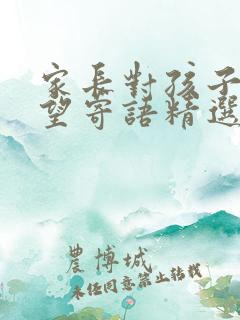 家長對孩子
望寄語精選
農博城
未经同意禁止转载